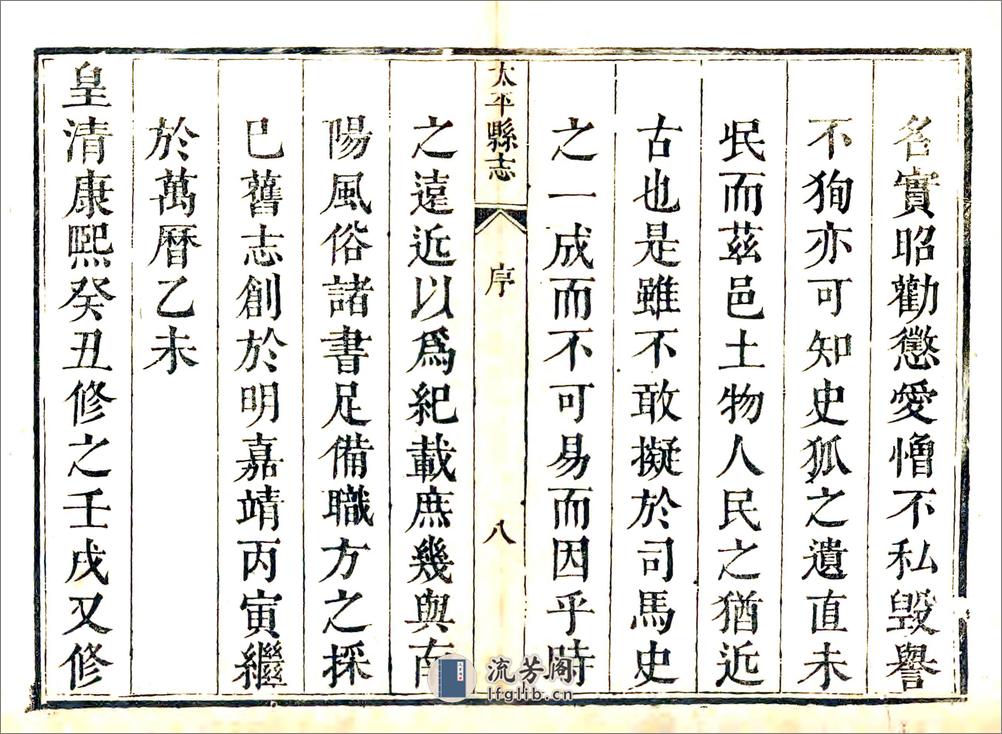 名實昭勸懲愛憎不私毀譽
不狥亦可知史狐之遺直未
泯而茲邑土物人民之猶近
古也是雖不敢擬於司馬史
之一成而不可易而因乎時
太平縣志
序
八
之遠近以爲紀載庶幾與南
陽風俗諸書足備職方之採
已舊志創於明嘉靖丙寅繼
於萬曆乙未
皇清康熙癸丑修之壬戌又修
流芳阁
lfglib.cn